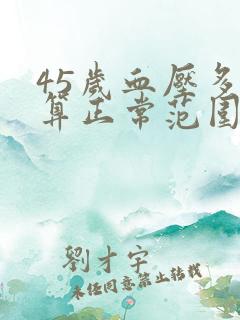 45歲血壓多
算正常范围
劉才宇
未经同意禁止转载